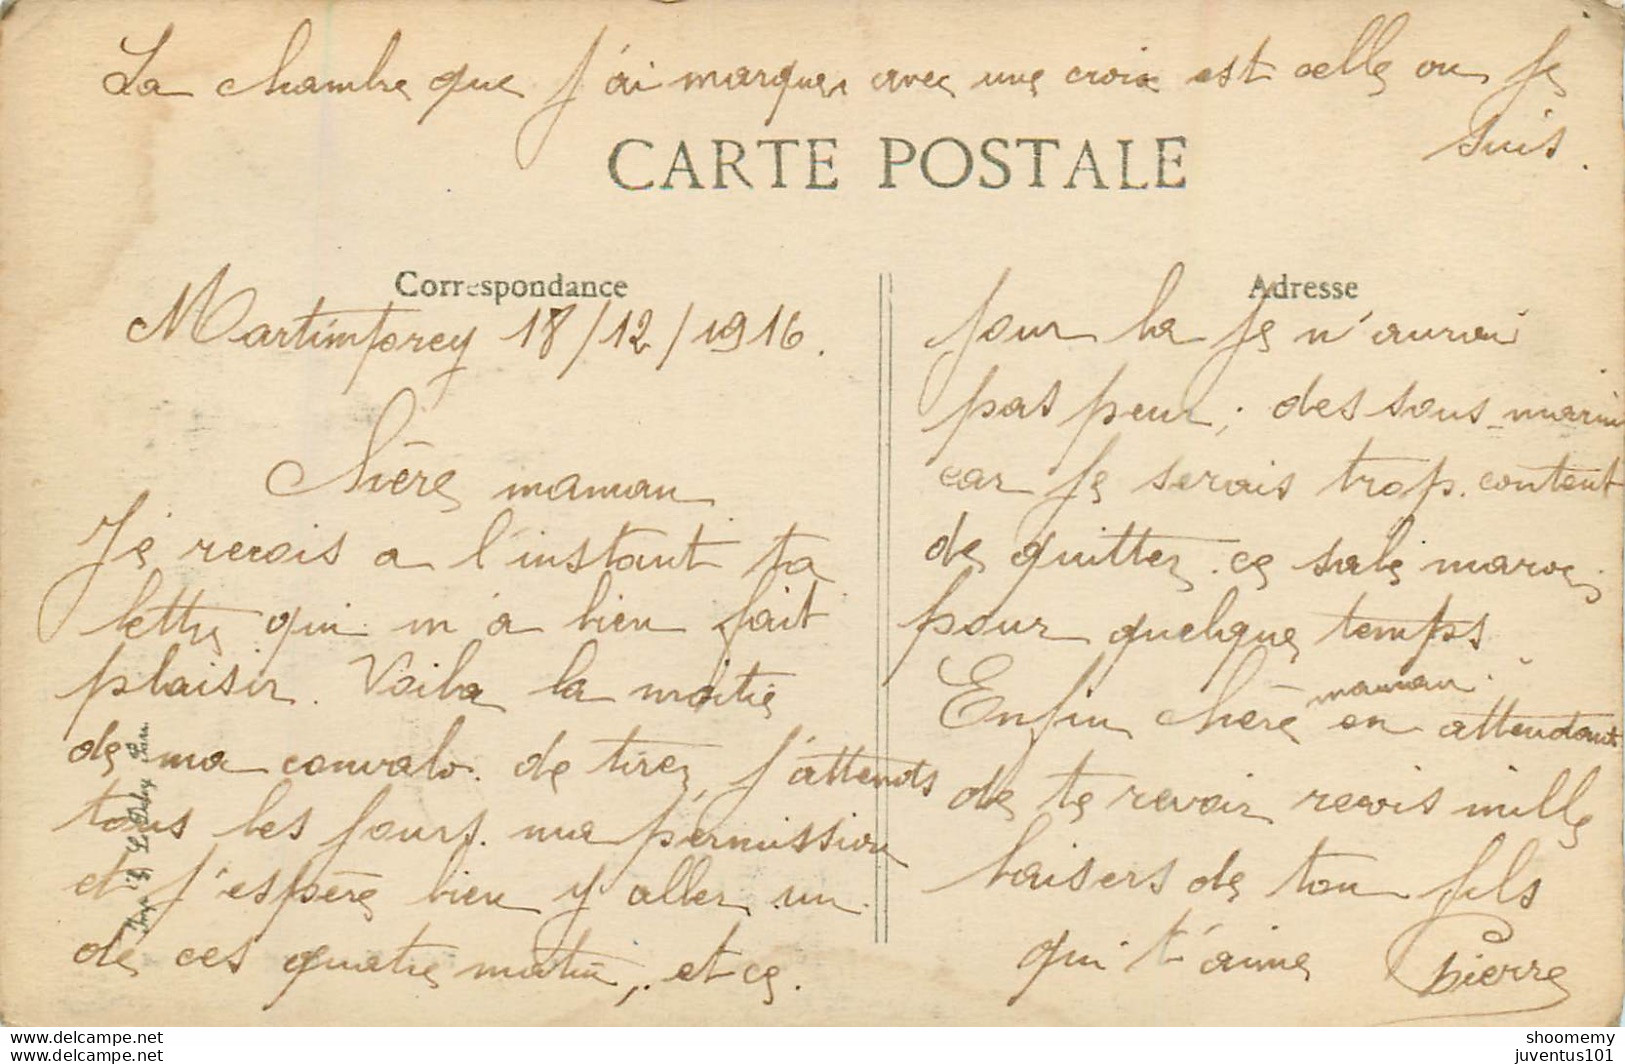 La chambre que j'ai marquer avec une croix est celle ou je
suis.
CARTE POSTALE
Correspondance
Martimprey 18/12/1916.
Chère maman
Je recois a l'instant ta
lettre qui m'a bien fait
plaisir. Voila la moitie
de ma convalo. de tirer, j'attends
tous les jours. ma permission
et j'espère bien y aller un
de ces quatre matin, et ce.
Adresse
jour la je n'aurai
pas peur, des sous-marin
car je serais trop. content
de quitter. ce sale maroc
pour quelque temps
Enfin chère maman en attendant
de te revoir recois mille
baisers de ton fils
qui t'aime Pierre
Paris
shoomemy
juventus101